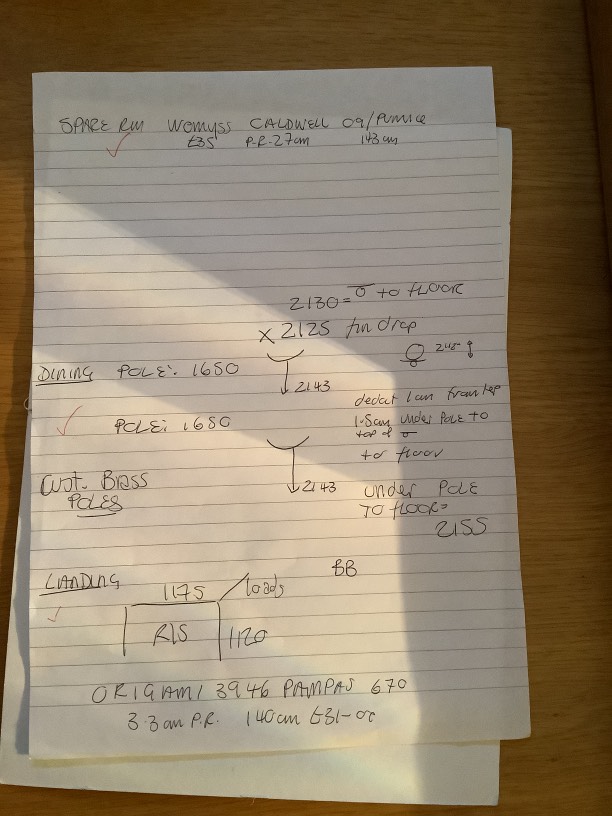 SPARE RM WOMYSS CALDWELL 09/PUMICE
£35 P.R-27cm 143cm
2130= to FLOOR
x 2125 fin drop
DINING POLE: 1650
2143
deduct 1cm from top
1.5cm under Pole to
top of
to floor
POLE: 1650
2143
Cust. Brass
POLES
under Pole
TO floor=
2155
BB
LANDING
1175 loads
R/S 1120
ORIGAMI 3946 PAMPAS 670
3.3cm P.R. 140cm £31-00